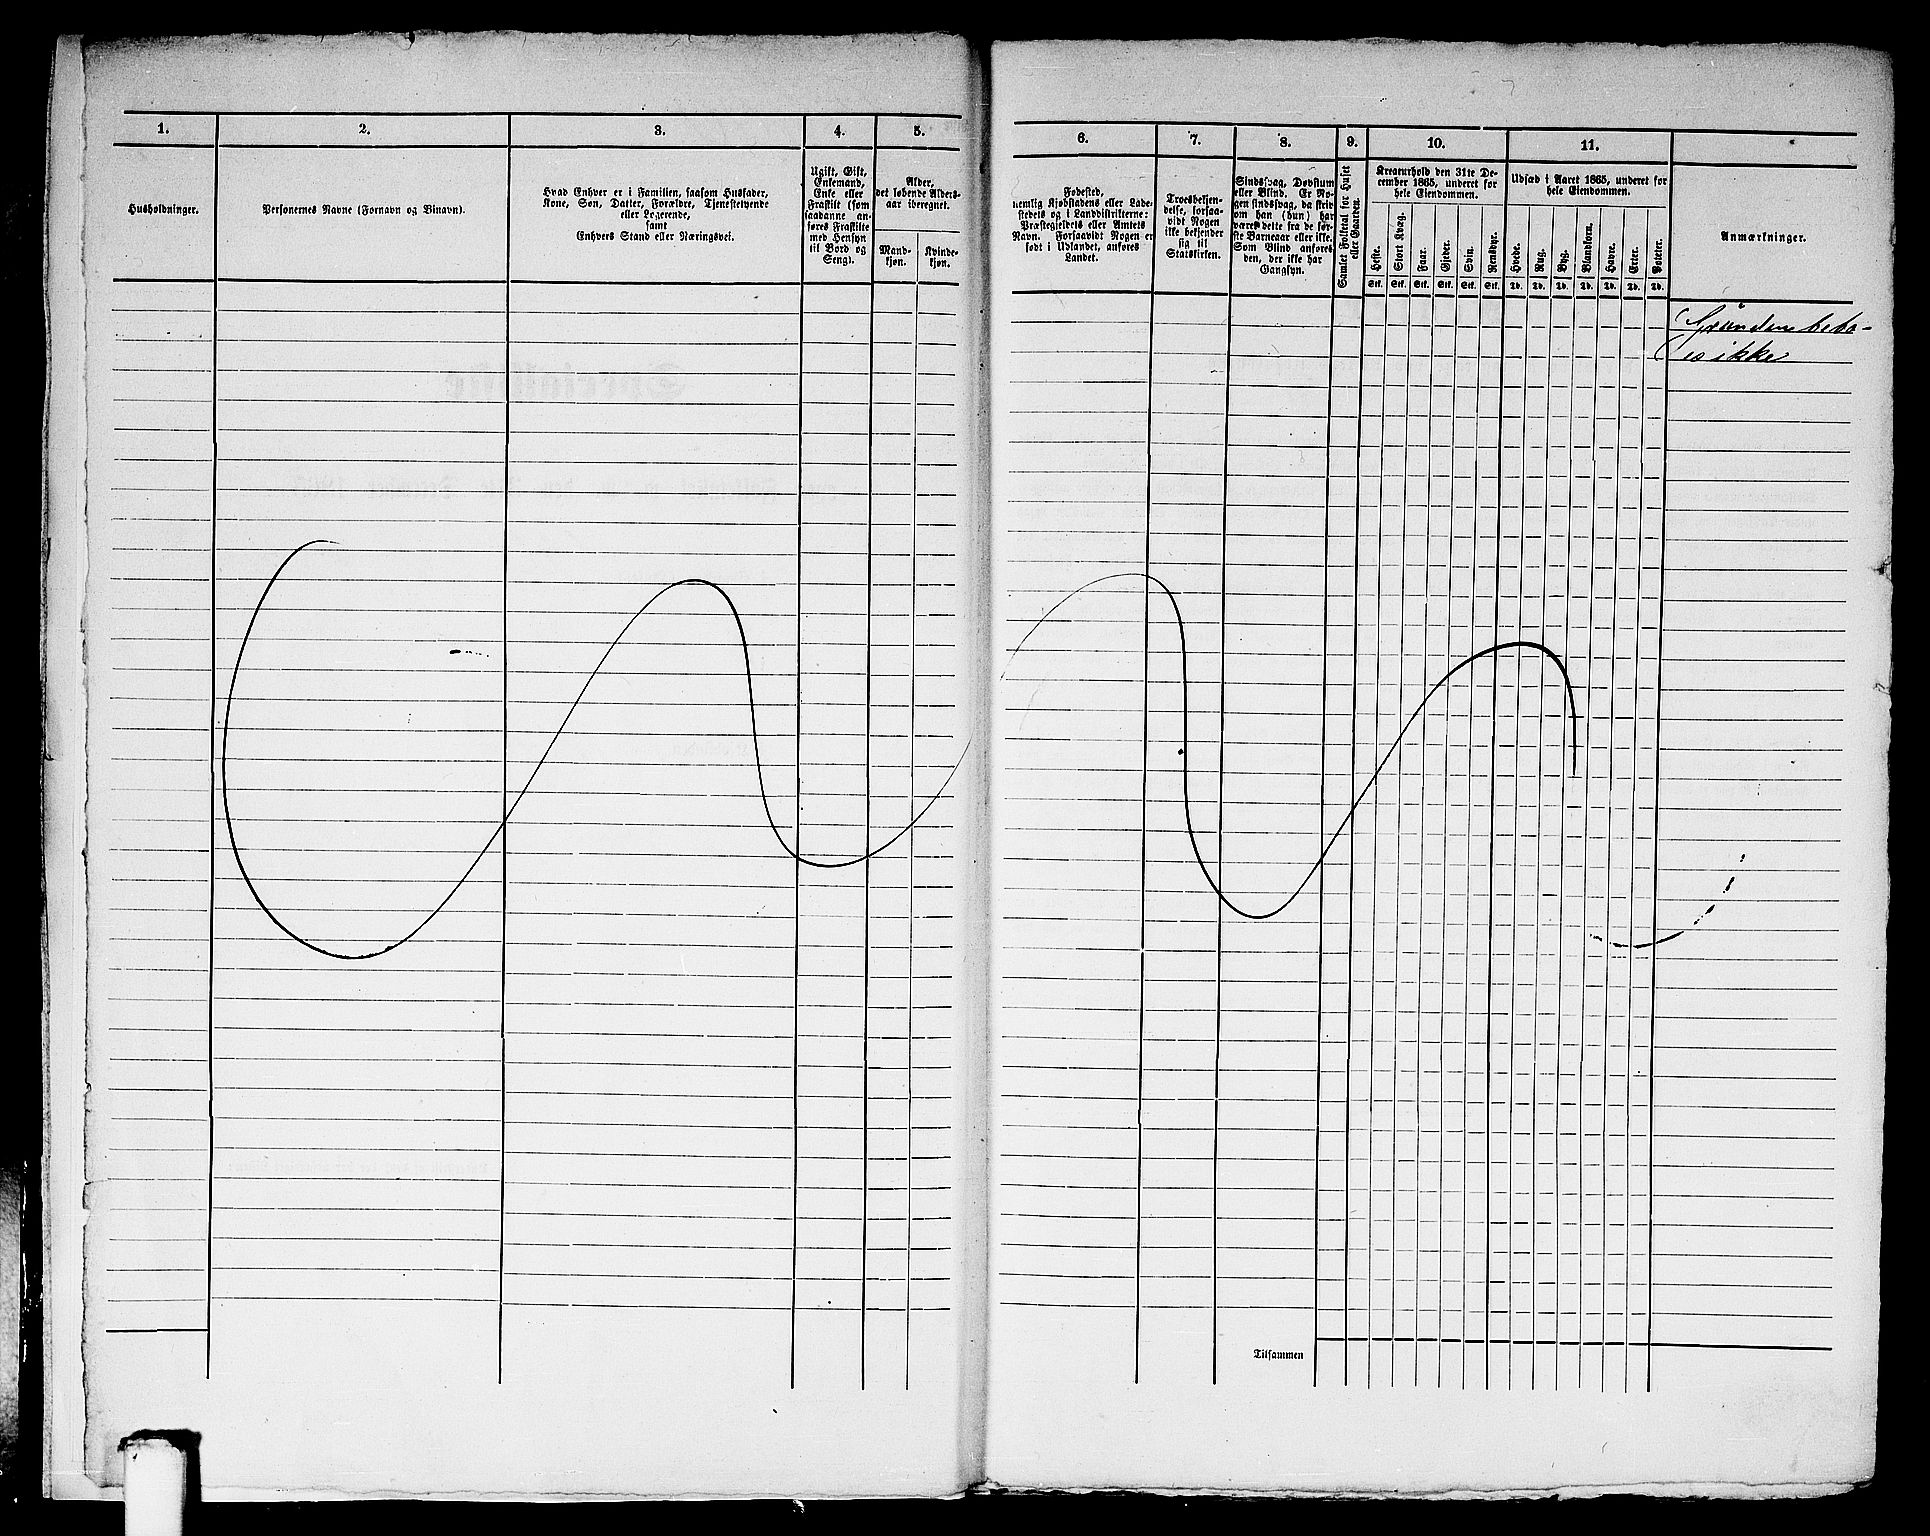 1.
2.
3.
4.
5.
6.
7.
8.
9.
10.
11.
Husholdninger.
Personernes Navne (Fornavn og Binavn).
Hvad Enhver er i Familien, saasom Husfader,
Kone, Søn, Datter, Forældre, Tjenestetyende
eller Logerende,
samt
Enhvers Stand eller Næringsvei.
Ugift, Gift,
Enkemand,
Enke eller
Fraskilt (som
saadanne an-
føres Fraskilte
med Hensyn
til Bord og
Seng).
Alder,
det løbende Alders-
aar iberegnet.
Mand-
kjøn.
Kvinde-
kjøn.
Fødested,
nemlig Kjøbstadens eller Lade-
stedets og i Landdistrikterne:
Præstegjeldets eller Amtets
Navn. Forsaavidt Nogen er
født i Udlandet, anføres
Landet.
Troesbekjen-
delse, forsaa-
vidt Nogen
ikke bekjender
sig til
Statskirken.
Sindssvag, Døvstum
eller Blind. Er No-
gen sindssvag, da skriv
om han (hun) har
været dette fra de før-
ste Barneaar eller ikke.
Som Blind anføres
den, der ikke har
Gangsyn.
Samlet Folketal for Huset
eller Gaarden.
Kreaturhold den 31te De-
cember 1865, underet for
hele Eiendommen.
Heste.
Stort Kvæg.
Faar.
Gjeder.
Svin.
Rensdyr.
Stk. Stk. Stk. Stk. Stk. Stk.
Udsæd i Aaret 1865, underet for
hele Eiendommen.
Hvede.
Rug.
Byg.
Blandkorn.
Havre.
Erter.
Poteter.
Td. Td. Td. Td. Td. Td. Td.
Anmærkninger.
Grunden bebo-
es ikke
Tilsammen